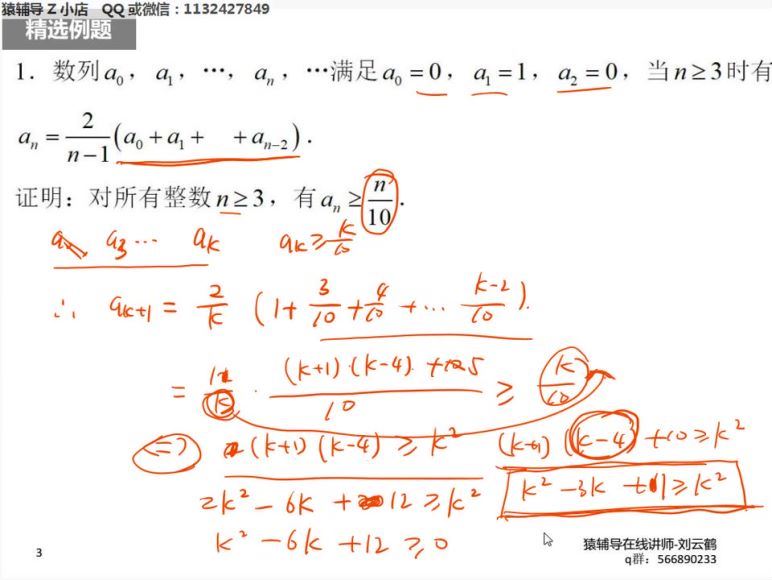 猿辅导 Z 小店 QQ 或微信：1132427849
精选例题
1．数列 a₀，a₁，⋯，aₙ，⋯满足 a₀ = 0，a₁ = 1，a₂ = 0，当 n ≥ 3 时有
aₙ = 2/(n−1) (a₀ + a₁ + + aₙ₋₂)．
证明：对所有整数 n ≥ 3，有 aₙ ≥ n/10．
a₃ ⋯ aₖ aₖ ≥ k/10
∴ aₖ₊₁ = 2/k (1 + 3/10 + 4/10 + ⋯ (k−2)/10)．
= ((k+1)·(k−4) + )/10 ≥ k/10
(k+1)(k−4) ≥ k² (k+1)(k−4) + 10 ≥ k²
2k² − 6k + 12 ≥ k² k² − 3k + ≥ k²
k² − 6k + 12 ≥ 0
猿辅导在线讲师-刘云鹤
3 q群：566890233